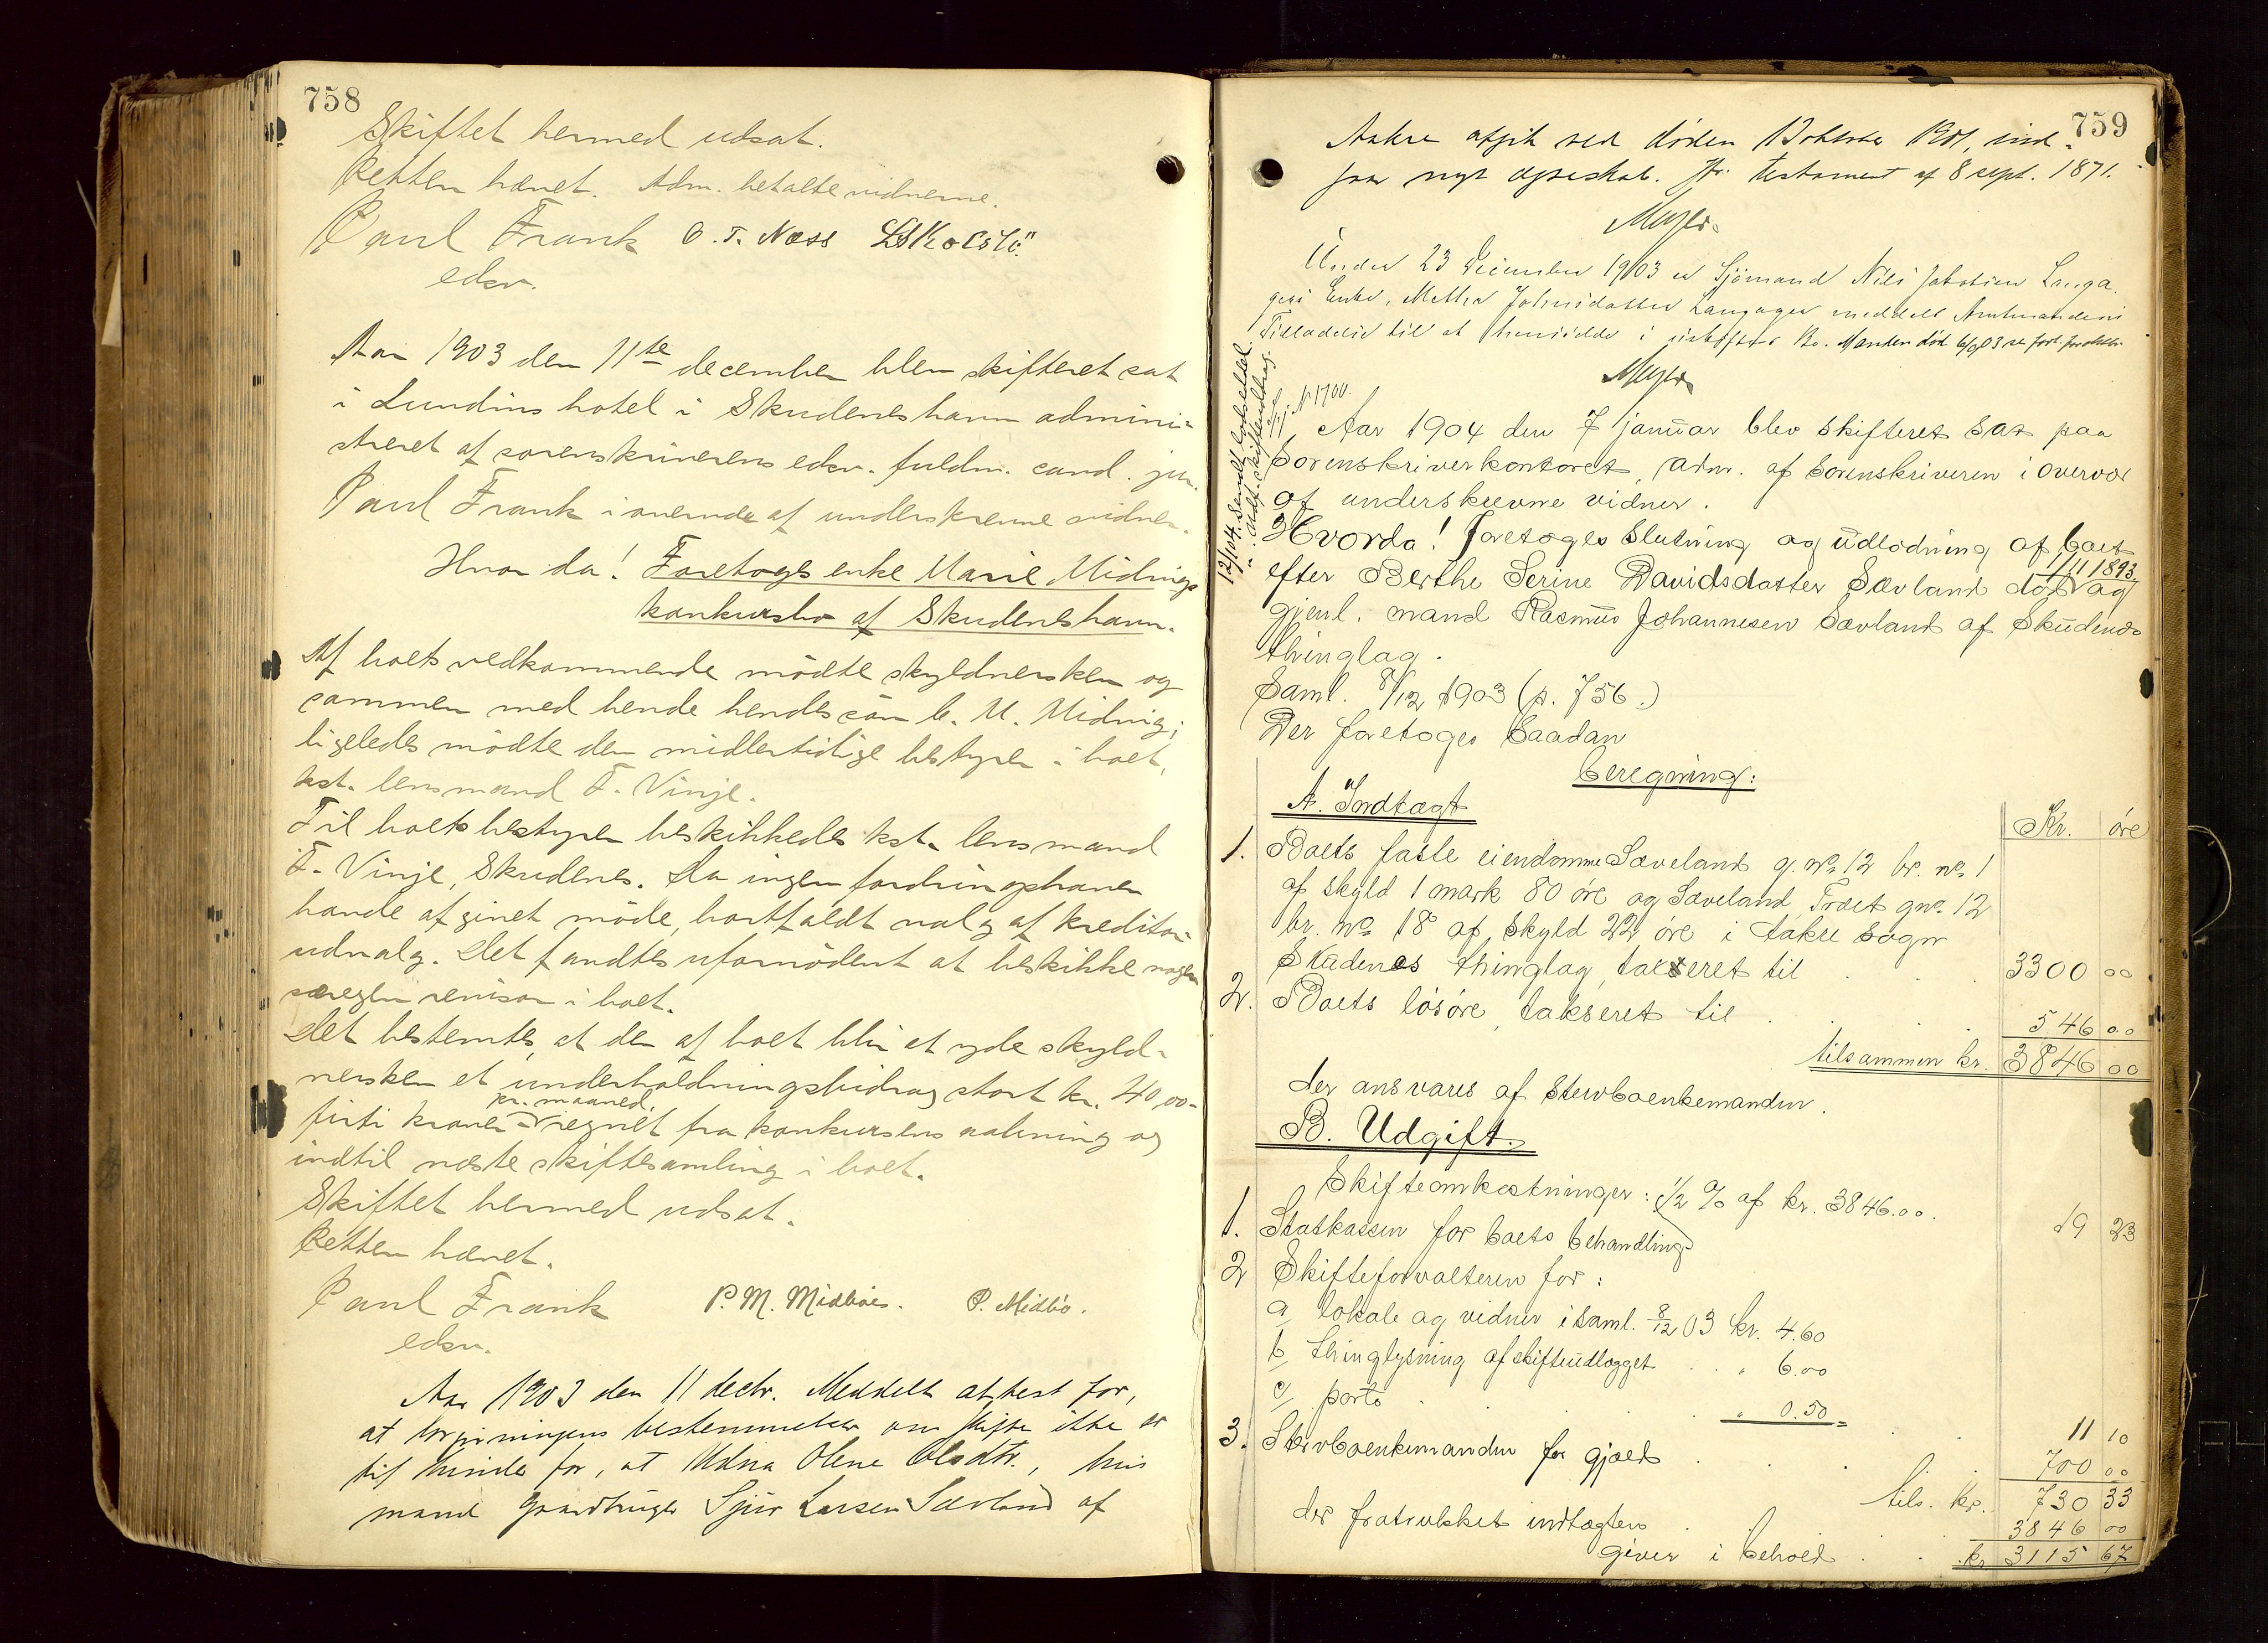 758
Skiftet hermed udsat.
Retten hævet. Adm. betalte vidnerne.
Paul Frank O. T. Næss
edsv.
Aar 1903 den 11te december blev skifteret sat
i Lundins hotel i Skudeneshavn admini-
streret af sorenskriverens edsv. fuldm. cand. jur.
Paul Frank i overvær af underskrevne vidner.
Hvor da! Foretoges enke Marie Midings
konkursbo af Skudeneshavn.
Af boets vedkommende mødte skyldnersken og
sammen med hende hendes søn M. Miding;
ligeledes mødte den midlertidige bestyrer i boet,
kst. lensmand F. Vinje.
Til boets bestyrer beskikkedes kst. lensmand
F. Vinje, Skudenes. Da ingen fordringshaver
havde afgivet møde, bortfaldt valg af kreditor-
udvalg. Det fandtes ufornødent at beskikke nogen
særegen revisor i boet.
Det bestemtes, at der af boet blir at yde skyld-
nersken et underholdningsbidrag stort kr. 40,00-
firti kroner pr. maaned regnet fra konkursens aabning og
indtil næste skiftesamling i boet.
Skiftet hermed udsat.
Retten hævet.
Paul Frank P. M. Midbøe. P. Midbö.
edsv.
Aar 1903 den 11 decbr. Meddelt attest for,
at lovgivningens bestemmelser om skifte ikke er
til hinder for, at Udna Olene Olsdtr., hvis
mand gaardbruger Sjur Larsen Sævland af
759
Aakre afgik ved døden 12 oktober 1901, ind-
gaar nyt ægteskab. Jfr. testament af 8 sept. 1871.
Meyer.
Under 23 December 1903 er Sjömand Nils Jakobsen Langa-
gers Enke, Methe Johnsdatter Langager meddelt Amtmandens
Tilladelse til at hensidde i uskiftet Bo. Manden död 6/9 03
Meyer
12/1 04. Sendt
Aar 1904 den 7 januar blev skifteret sat paa
Sorenskriverkontoret, adm. af Sorenskriveren i overvær
af underskrevne vidner.
Hvorda! Foretoges Slutning og udlodning af boet
efter Berthe Serine Davidsdatter Sævland død 1/11 1893 og
gjenl. mand Rasmus Johannesen Sævland af Skudenes
thinglag.
Saml. 8/12 1903 (p. 756.)
Der foretoges saadan
beregning:
A. Indtægt
Kr. øre
1. Boets faste eiendomme Sæveland g. no. 12 br. no. 1
af skyld 1 mark 80 øre og Sæveland, Træet gno. 12
br. no. 18 af skyld 22 øre i Aakre sogn
Skudenes thinglag, takseret til 3300 00
2. Boets løsøre, takseret til 546 00
tilsammen kr. 3846 00
der ansvares af Stervboenkemanden.
B. Udgift.
Skifteomkostninger: 1/2 % af kr. 3846.00.
1. Statskassen for boets behandling 19 23
2 Skifteforvalteren for:
a, lokale og vidner i saml. 8/12 03 kr. 4.60
b, thinglysning af skifteudlægget " 6.00
c, porto " 0.50 = 11 10
3. Stervboenkemanden for gjæld 700 00
tils. kr. 730 33
der fratrukket indtægten 3846 00
giver i behold kr. 3115 67